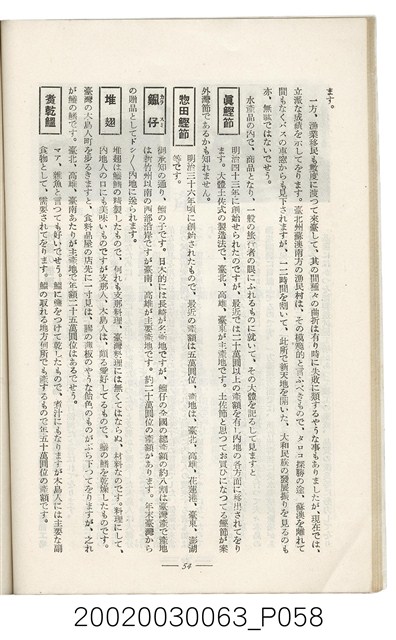 ます。
一方、漁業移民も數度に渡つて來臺して、其の間種々の曲折は有り時に失敗に類するやうな事もありましたが、現在では、
立派な成績を示してをります。臺北州蘇澳南方の漁民村は、その模範的と言ふべきもので、タロコ探勝の途、蘇澳を離れて
間もなくバスの車窓からも見下されますが、一二時間を割いて、此所で新天地を開いた、大和民族の發展振りを見るのも
亦、無駄ではないでせう。
水產品の內で、商品となり、一般の旅行者の眼にふれるものに就いて、その大體を記るして見ますと
眞鰹節
明治四十三年に創始せられたのですが、最近では二十萬圓以上の產額を有し內地の各方面に移出されてをり
ます。大體土佐式の製造法で、臺北、高雄、臺東が主產地です。土佐節と思つてお買ひになつてる鰹節が案
外灣節であるかも知れません。
惣田鰹節
明治三十六年頃に創始されたもので、最近の產額は五萬圓位、產地は、臺北、高雄、花蓮港、臺東、澎湖
等です。
鰡仔
御承知の通り、鰡の子です。日本的には長崎が名產地ですが、鰡仔の全國の總產額の約八割は臺灣產で產地
は新竹州以南の西部沿岸ですが臺南、高雄が主要產地です。約二十萬圓位の產額があります。年末臺灣から
の贈品としてドシ〳〵內地に送られます。
堆翅
堆翅は鱶鰭の精製したもので、何れも支那料理、臺灣料理には無くてはならぬ、材料なのです。料理にして、
內地人の口にも美味いものですが支那人、本島人は、頗る愛好してるもので、鱶の鰭を乾燥したものです。
臺灣の本島人町を步るきますと、食料品屋の店先に一寸見は、膠の薄板のやうな飴色のものがぶら下つてをりますが、之れ
が鱶の鰭です。臺北、高雄、臺南あたりが主產地で年額二十五萬圓位はあるでせう。
煮乾鰮
マア、雜魚と言つても好いでせう。鰮に鹽をつけて乾したもので、煮汁にもなりますが本島人には主要な副
食物として、需要されてをります。鰮の取れる地方何所でも產するもので年五十萬圓位の產額です。
— 54 —
20020030063_P058